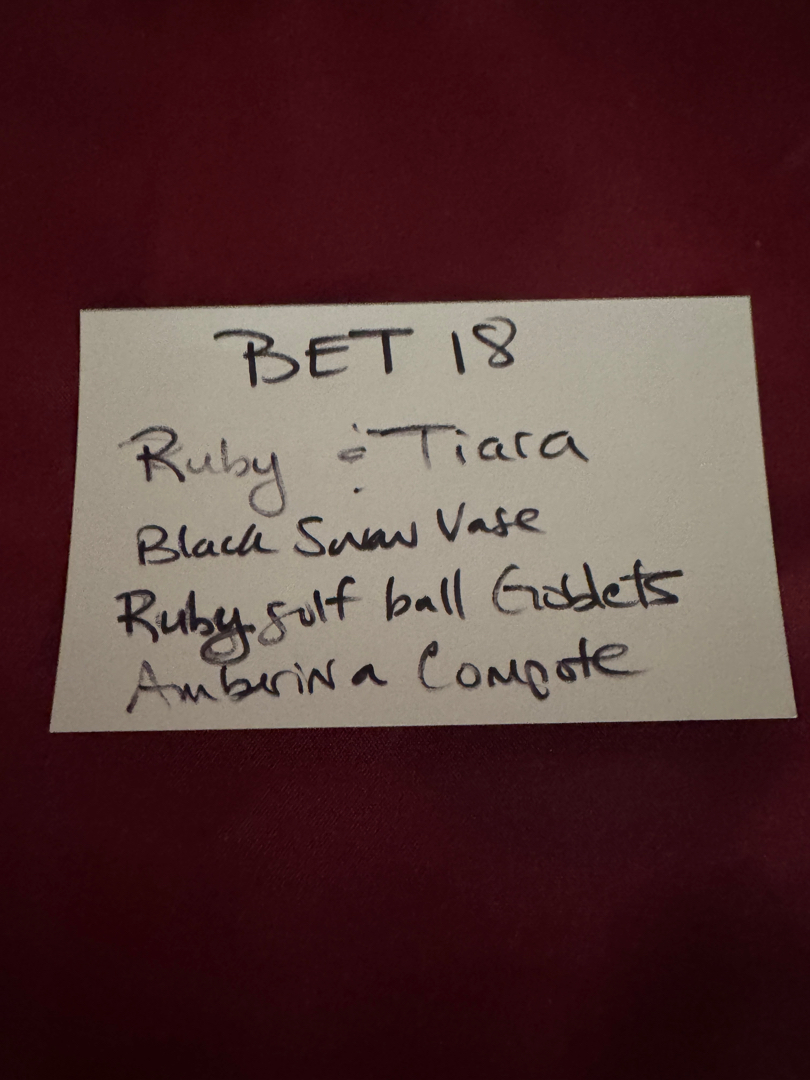 BET 18
Ruby & Tiara
Black Swan Vase
Ruby golf ball Goblets
Amberina Compote